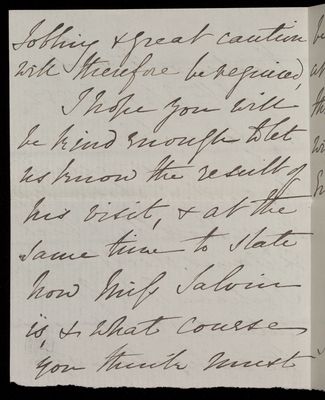 Jobbing & great caution
will therefore be required,
I hope you will
be kind enough to let
us know the result of
his visit, & at the
same time to state
how Miss Salvin
is, & what course
you think must